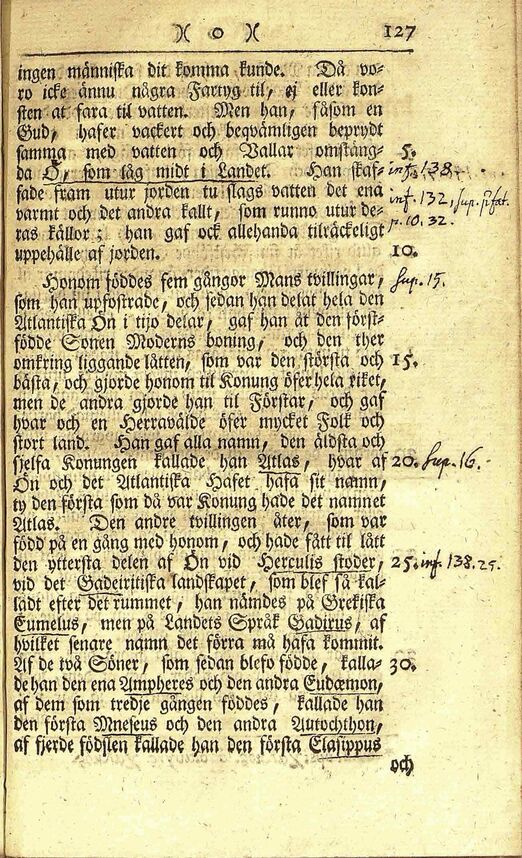 )( o )( 127
ingen människa dit komma kunde. Då vo-
ro icke ännu några Fartyg til, ej eller kon-
sten at fara til vatten. Men han, såsom en
Gud, hafer vackert och beqvämligen beprydt
samma med vatten och Vallar omstäng- 5.
da Ö, som låg midt i Landet. Han skaf- inf. 138.
fade fram utur jorden tu slags vatten det ena inf. 132, sup. præfat.
varmt och det andra kallt, som runno utur de- p. 10. 32.
ras källor; han gaf ock allehanda tilräckeligt
uppehälle af jorden. 10.
Honom föddes fem gångor Mans tvillingar, sup. 15.
som han upfostrade, och sedan han delat hela den
Atlantiska Ön i tijo delar, gaf han åt den först-
födde Sonen Moderns boning, och den ther
omkring liggande lätten, som var den största och 15.
bästa, och gjorde honom til Konung öfer hela riket,
men de andra gjorde han til Förstar, och gaf
hvar och en Herravälde öfer mycket Folk och
stort land. Han gaf alla namn, den äldsta och
sjelfa Konungen kallade han Atlas, hvar af 20. sup. 16.
Ön och det Atlantiska Hafet hafa sit namn,
ty den första som då var Konung hade det namnet
Atlas. Den andre tvillingen åter, som var
född på en gång med honom, och hade fått til lått
den yttersta delen af Ön vid Herculis stoder, 25. inf. 138. 25.
vid det Gadeiritiska landskapet, som blef så kal-
ladt efter det rummet, han nämdes på Grekiska
Eumelus, men på Landets Språk Gadirus, af
hvilket senare namn det förra må hafa kommit.
Af de två Söner, som sedan blefo födde, kalla- 30.
de han den ena Ampheres och den andra Eudæmon,
af dem som tredje gången föddes, kallade han
den första Mneseus och den andra Autochthon,
af fjerde födslen kallade han den första Elasippus
och